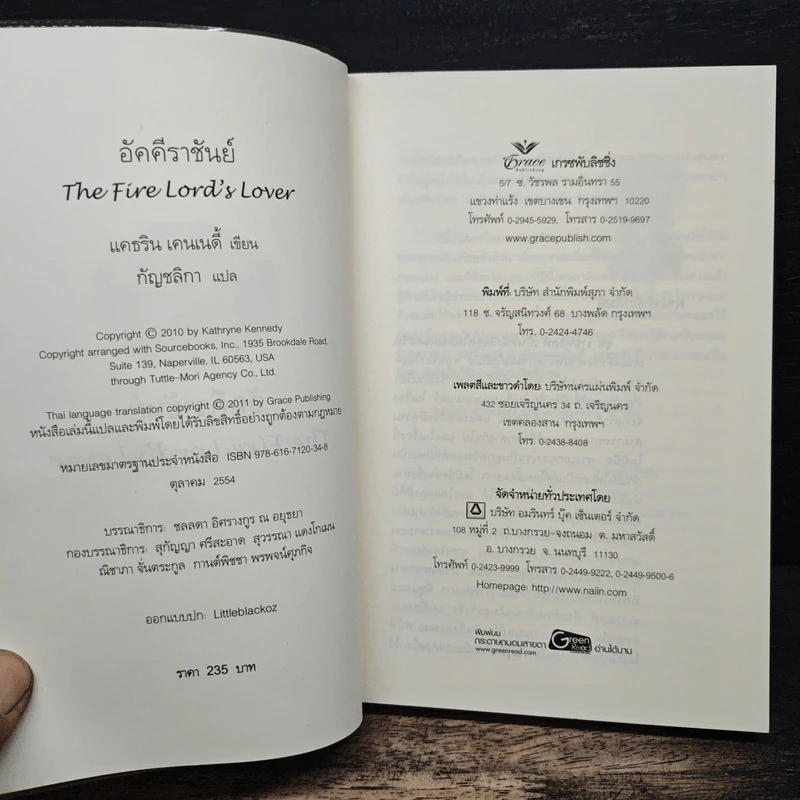 อัคคีราชันย์
The Fire Lord's Lover
แคธริน เคนเนดี้ เขียน
กัญชลิกา แปล
Copyright © 2010 by Kathryne Kennedy
Copyright arranged with Sourcebooks, Inc., 1935 Brookdale Road,
Suite 139, Naperville, IL 60563, USA
through Tuttle-Mori Agency Co., Ltd.
Thai language translation copyright © 2011 by Grace Publishing
หนังสือเล่มนี้แปลและพิมพ์โดยได้รับลิขสิทธิ์อย่างถูกต้องตามกฎหมาย
หมายเลขมาตรฐานประจำหนังสือ ISBN 978-616-7120-34-8
ตุลาคม 2554
บรรณาธิการ: ชลลดา อิศรางกูร ณ อยุธยา
กองบรรณาธิการ: สุกัญญา ศรีสะอาด สุวรรณา แดงโกเมน
ณิชาภา จั่นตระกูล กานต์พิชชา พรพจน์ศุภกิจ
ออกแบบปก: Littleblackoz
ราคา 235 บาท
Grace Publishing เกรซพับลิชชิ่ง
5/7 ซ. วัชรพล รามอินทรา 55
แขวงท่าแร้ง เขตบางเขน กรุงเทพฯ 10220
โทรศัพท์ 0-2945-5929, โทรสาร 0-2519-9697
www.gracepublish.com
พิมพ์ที่: บริษัท สำนักพิมพ์สุภา จำกัด
118 ซ. จรัญสนิทวงศ์ 68 บางพลัด กรุงเทพฯ
โทร. 0-2424-4746
เพลตสีและขาวดำโดย: บริษัทนครแผ่นพิมพ์ จำกัด
432 ซอยเจริญนคร 34 ถ. เจริญนคร
เขตคลองสาน กรุงเทพฯ
โทร. 0-2438-8408
จัดจำหน่ายทั่วประเทศโดย
บริษัท อมรินทร์ บุ๊ค เซ็นเตอร์ จำกัด
108 หมู่ที่ 2 ถ.บางกรวย-จงถนอม ต. มหาสวัสดิ์
อ. บางกรวย จ. นนทบุรี 11130
โทรศัพท์ 0-2423-9999 โทรสาร 0-2449-9222, 0-2449-9500-6
Homepage: http://www.naiin.com
พิมพ์บน
กระดาษถนอมสายตา Green Read อ่านได้นาน
www.greenread.com